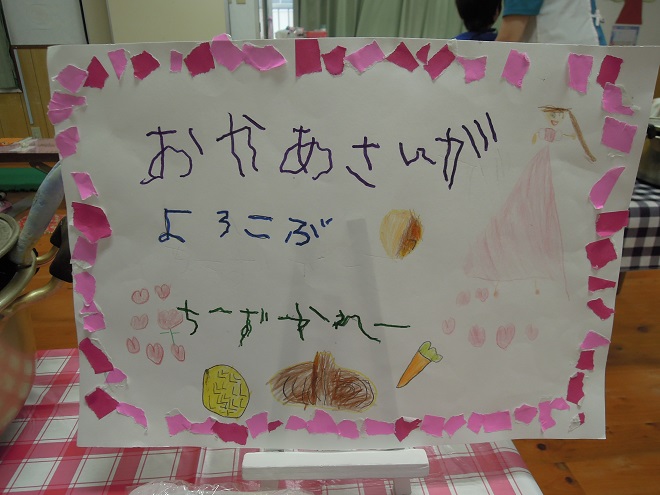 おかあさんが
よろこぶ
ちーずかれー